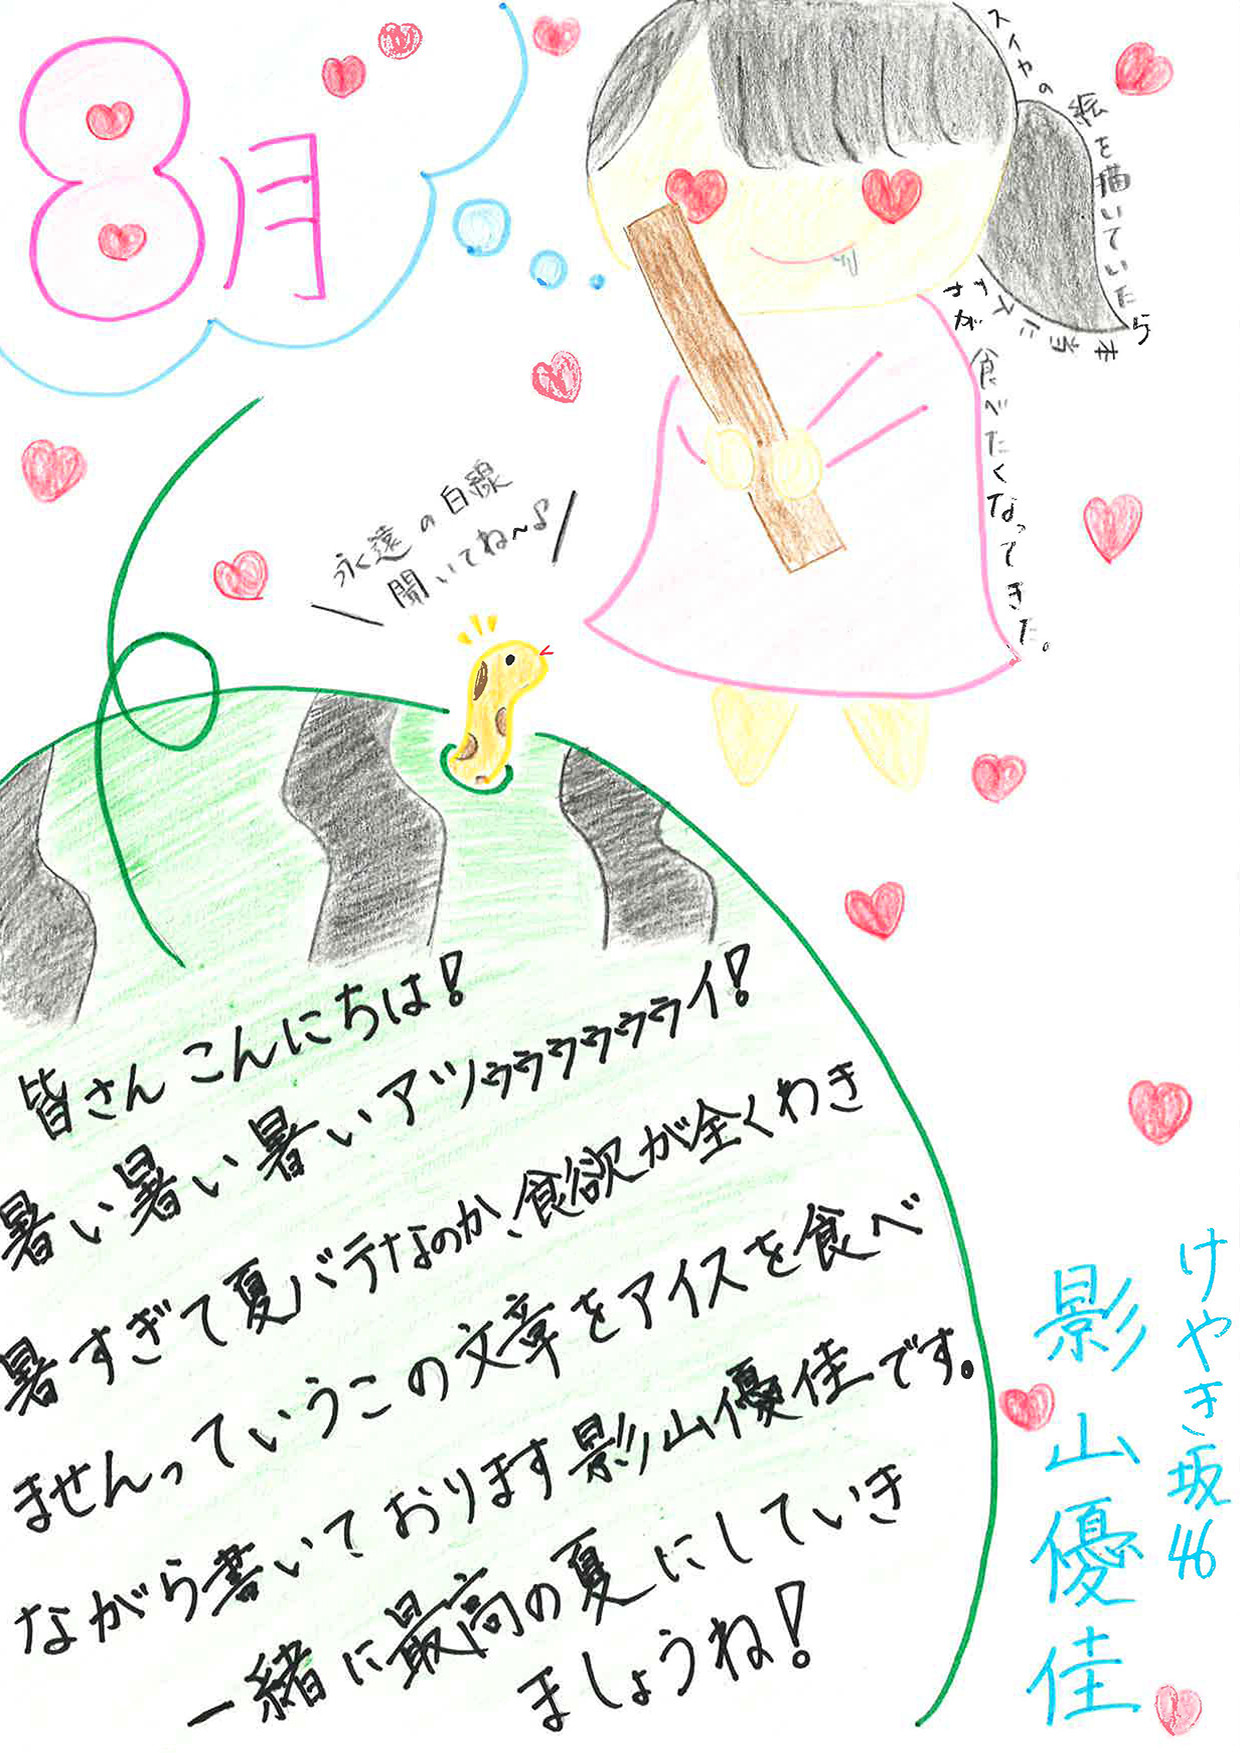 8月
スイカの絵を描いていたら
無性にアイス
が食べたくなってきた。
永遠の白線
聞いてね〜♪
皆さんこんにちは!
暑い暑い暑いアツゥゥゥゥゥゥイ!
暑すぎて夏バテなのか、食欲が全くわき
ませんっていうこの文章をアイスを食べ
ながら書いております影山優佳です。
一緒に最高の夏にしていき
ましょうね!
けやき坂46
影山優佳